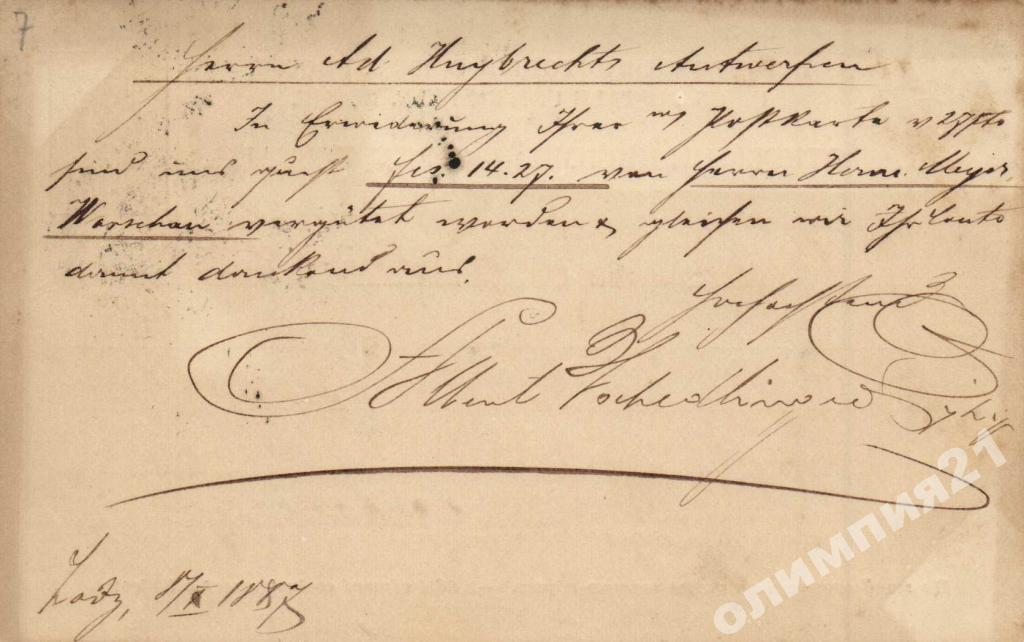 7
Herrn Ad Huybrechts Antwerpen
In Erwiderung Ihrer Postkarte v 27
sind uns fcs. 14.27. von Herrn Meyer,
Warschau vergütet worden & gleichen wir Ihr Conto
damit dankend aus.
Hochachtend
Albert
Lodz, 1887
олимпия21